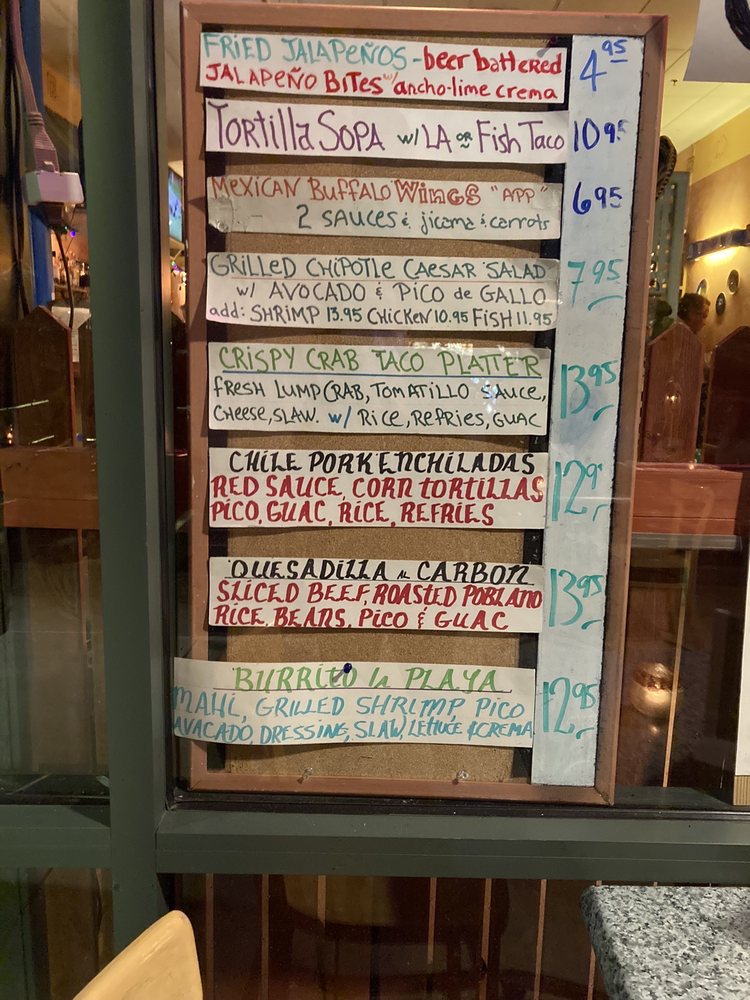 FRIED JALAPEÑOS - beer battered
JALAPEÑO BITES w/ ancho-lime crema
4 95
TORTILLA SOPA w/ LA OR FISH TACO
10 95
MEXICAN BUFFALO WINGS "APP"
2 SAUCES & jicama & carrots
6 95
GRILLED CHIPOTLE CAESAR SALAD
w/ AVOCADO & PICO de GALLO
add: SHRIMP 13.95 CHICKEN 10.95 FISH 11.95
7 95
CRISPY CRAB TACO PLATTER
FRESH LUMP CRAB, TOMATILLO SAUCE,
CHEESE, SLAW. w/ RICE, REFRIES, GUAC
13 95
CHILE PORK ENCHILADAS
RED SAUCE, CORN TORTILLAS
PICO, GUAC, RICE, REFRIES
12 9
QUESADILLA AL CARBON
SLICED BEEF, ROASTED POBLANO
RICE, BEANS, PICO & GUAC
13 95
BURRITO la PLAYA
MAHI, GRILLED SHRIMP, PICO
AVACADO, DRESSING, SLAW, LETTUCE & CREMA
12 95